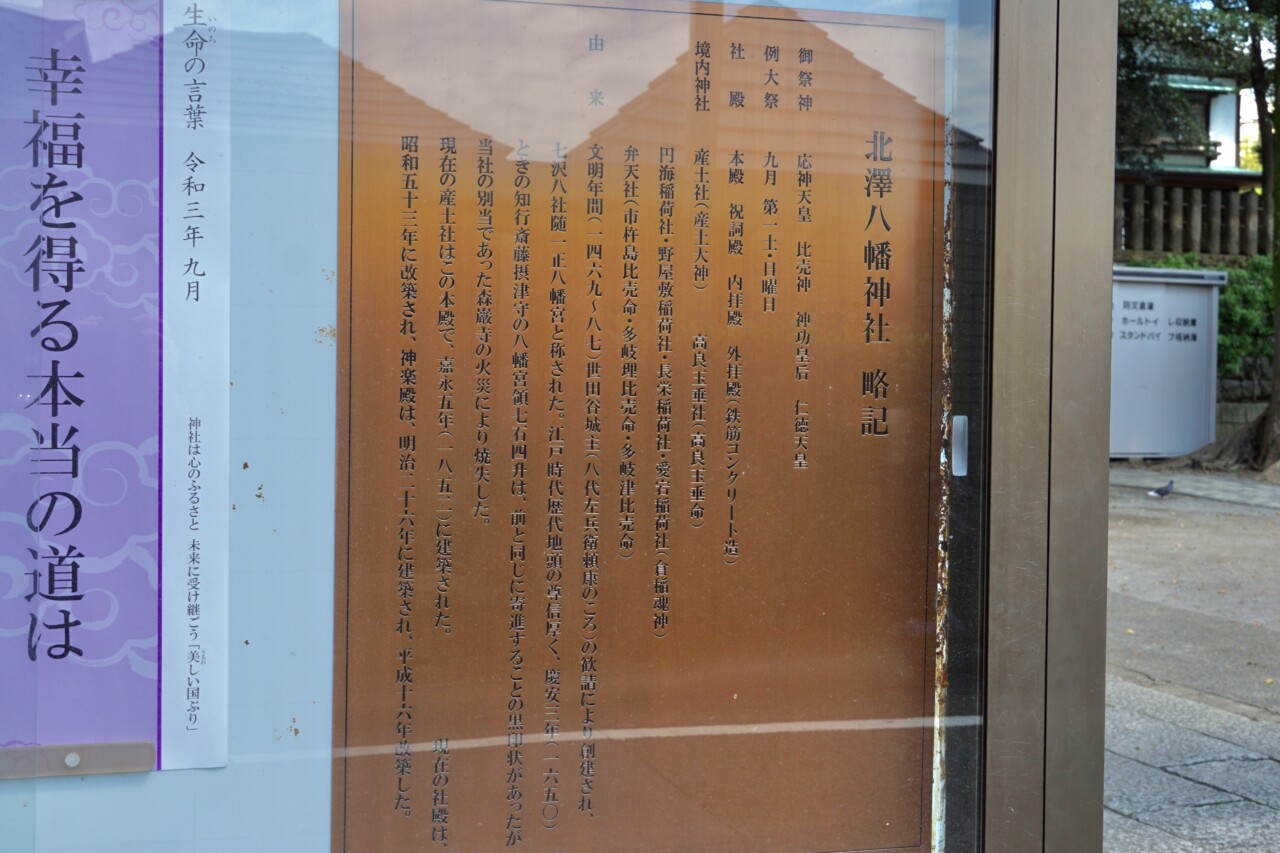 北澤八幡神社 略記
御祭神 応神天皇 比売神 神功皇后 仁徳天皇
例大祭 九月 第一土・日曜日
社殿 本殿 祝詞殿 内拝殿 外拝殿(鉄筋コンクリート造)
境内神社 産土社(産土大神) 高良玉垂社(高良玉垂命)
円海稲荷社・野屋敷稲荷社・長栄稲荷社・愛宕稲荷社(倉稲魂神)
弁天社(市杵島比売命・多岐理比売命・多岐津比売命)
由来 文明年間(一四六九～八七)世田谷城主(八代左兵衛頼康のころ)の歓請により創建され、
七沢八社随一正八幡宮と称された。江戸時代歴代地頭の尊信厚く、慶安三年(一六五〇)
ときの知行斎藤摂津守の八幡宮領七石四升は、前と同じに寄進することの黒印状があったが
当社の別当であった森巌寺の火災により焼失した。
現在の産土社はこの本殿で、嘉永五年(一八五二)に建築された。 現在の社殿は、
昭和五十三年に改築され、神楽殿は、明治二十六年に建築され、平成十六年改築した。
生命の言葉 令和三年 九月
いのち
神社は心のふるさと 未来に受け継ごう「美しい国ぶり」
幸福を得る本当の道は
防災倉庫
ホールトイレ収納庫
スタンドパイプ格納庫